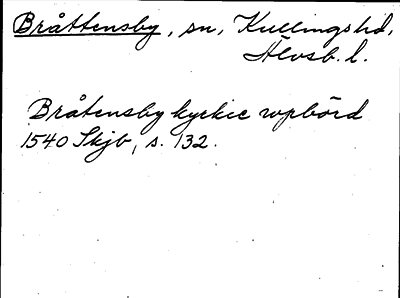 Bråttensby, sn, Kullings hd,
Älvsb. l.
Bråtensby kyrkee vpbörd
1540 Skjb, s. 132.